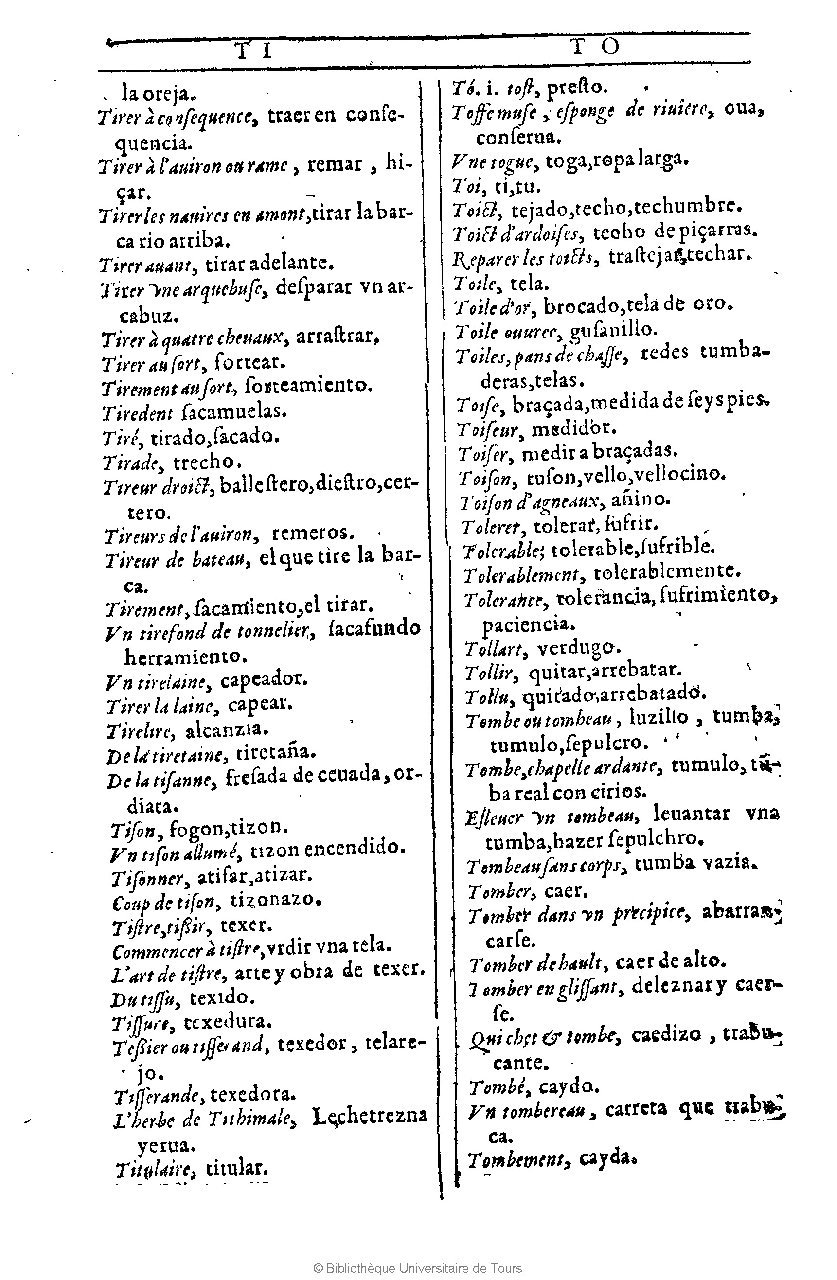 TI
TO
la oreja.
Tirer à conſequence, traer en conſe-
quencia.
Tirer à l'auiron ou rame, remar, hi-
çar.
Tirer les nauires en amont, tirar la bar-
ca rio arriba.
Tirer auant, tirar adelante.
Tirer vne arquebuſe, deſparar vn ar-
cabuz.
Tirer à quatre cheuaux, arraſtrar,
Tirer au ſort, ſortear.
Tirement au ſort, ſorteamiento.
Tiredent ſacamuelas.
Tiré, tirado, ſacado.
Tirade, trecho.
Tireur droict, balleſtero, dieſtro, cer-
tero.
Tireurs de l'auiron, remeros.
Tireur de bateau, el que tire la bar-
ca.
Tirement, ſacamiento, el tirar.
Vn tirefond de tonnelier, ſacafundo
herramiento.
Vn tirelaine, capeador.
Tirer la laine, capear.
Tirelire, alcanzia.
De la tiretaine, tiretaña.
De la tiſanne, freſada de ceuada, or-
diata.
Tiſon, fogon, tizon.
Vn tiſon allumé, tizon encendido.
Tiſonner, atiſar, atizar.
Coup de tiſon, tizonazo.
Tiſtre, tißir, texer.
Commencer à tiſtre, vrdir vna tela.
L'art de tiſtre, arte y obra de texer.
Du tiſſu, texido.
Tiſſure, texedura.
Teßier ou tiſſerand, texedor, telare-
jo.
Tiſſerande, texedora.
L'herbe de Tithimale, Lechetrezna
yerua.
Titulaire, titular.
Tó. i. toſt, preſto.
Toffe muſe, eſponge de riuiere, oua,
conſerua.
Vne togue, toga, ropa larga.
Toi, ti, tu.
Toict, tejado, techo, techumbre.
Toict d'ardoiſes, techo de piçarras.
Reparer les toicts, traſtejar, techar.
Toile, tela.
Toile d'or, brocado, tela de oro.
Toile ouuree, guſanillo.
Toiles, pans de chaſſe, redes tumba-
deras, telas.
Toiſe, braçada, medida de ſeys pies.
Toiſeur, medidor.
Toiſer, medir a braçadas.
Toiſon, tuſon, vello, vellocino.
Toiſon d'agneaux, añino.
Tolerer, tolerar, ſufrir.
Tolerable; tolerable, ſufrible.
Tolerablement, tolerablemente.
Tolerance, tolerancia, ſufrimiento,
paciencia.
Tollart, verdugo.
Tollir, quitar, arrebatar.
Tollu, quitado, arrebatado.
Tombe ou tombeau, luzillo, tumba,
tumulo, ſepulcro.
Tombe, chapelle ardante, tumulo, tũ-
ba real con cirios.
Eſleuer vn tombeau, leuantar vna
tumba, hazer ſepulchro.
Tombeau ſans corps, tumba vazia.
Tomber, caer.
Tomber dans vn precipice, abarran-
carſe.
Tomber de hault, caer de alto.
Tomber en gliſſant, deleznar y caer-
ſe.
Qui chet & tombe, caedizo, trabu-
cante.
Tombé, caydo.
Vn tombereau, carreta que trabu-
ca.
Tombement, cayda.
© Bibliothèque Universitaire de Tours